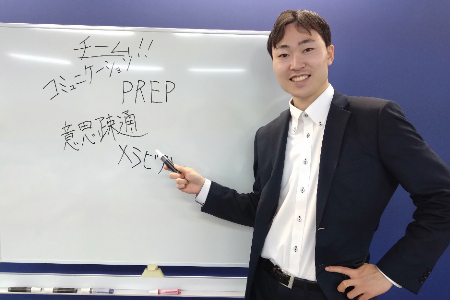 チーム!!
コミュニケーション
PREP
意思疎通
メラビアン